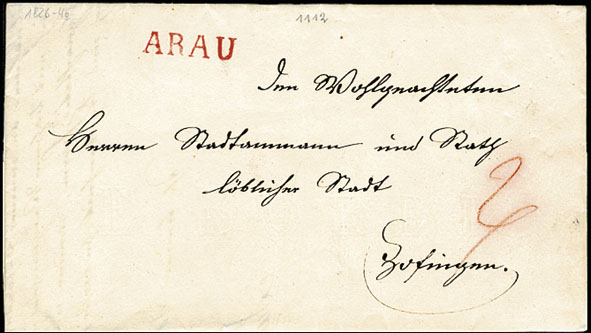 1826-4
1112
ARAU
Den Wohlgeachteten
Herren Stadtammann und Rath
löblicher Stadt
Zofingen.